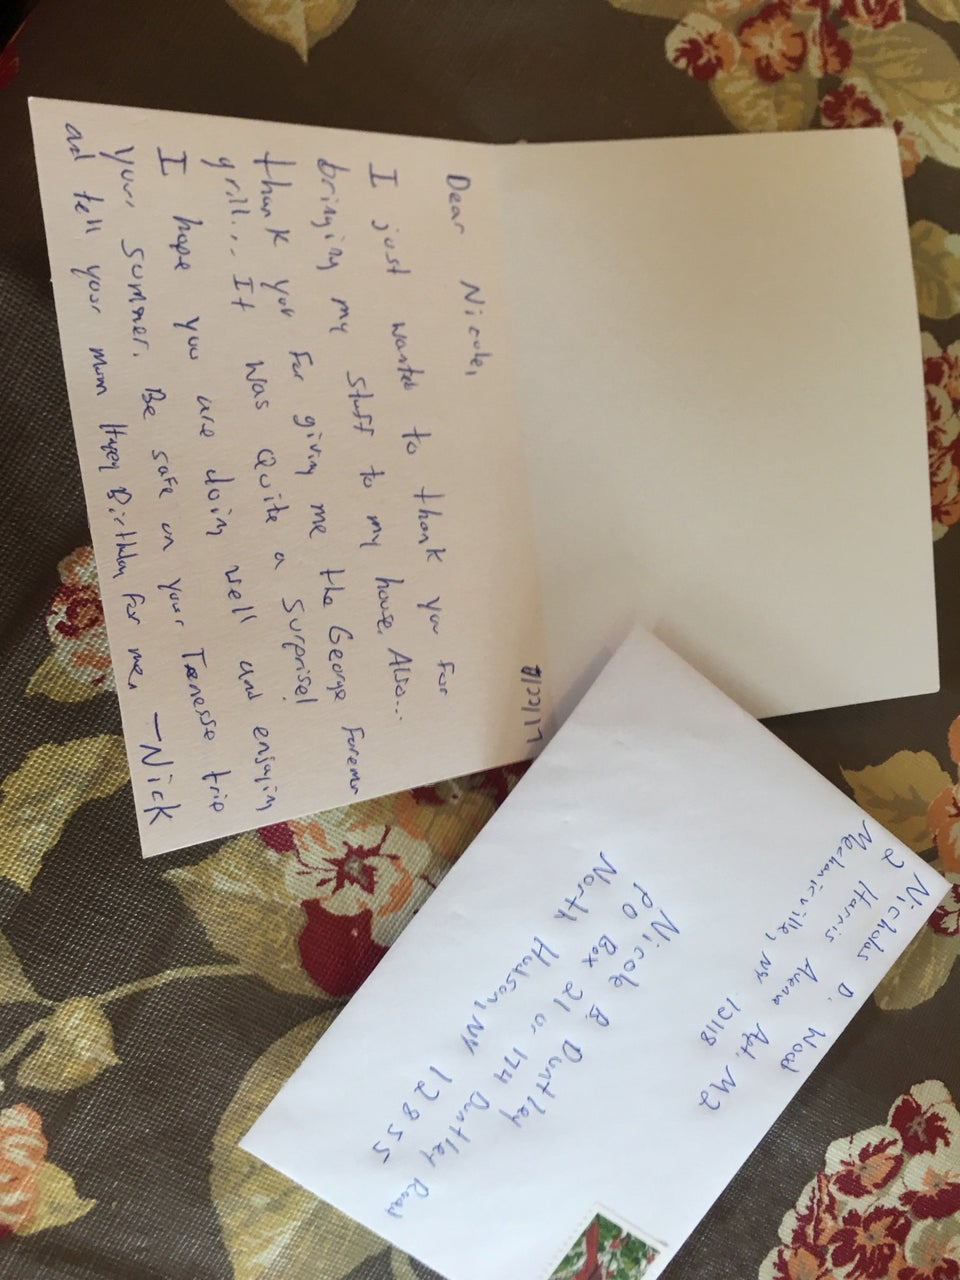 8/22/17
Dear Nicole,
I just wanted to thank you for
bringing my stuff to my house. Also...
thank you for giving me the George Foreman
grill... It was quite a surprise!
I hope you are doing well and enjoying
your summer. Be safe on your Tenesse trip
and tell your mom Happy Birthday for me,
—Nick
Nicholas D. Wood
2 Harris Avenue Apt. M2
Mechanicville, NY 12118
Nicole B. Duntley
PO Box 21 or 174 Duntley Road
North Hudson, NY 12855